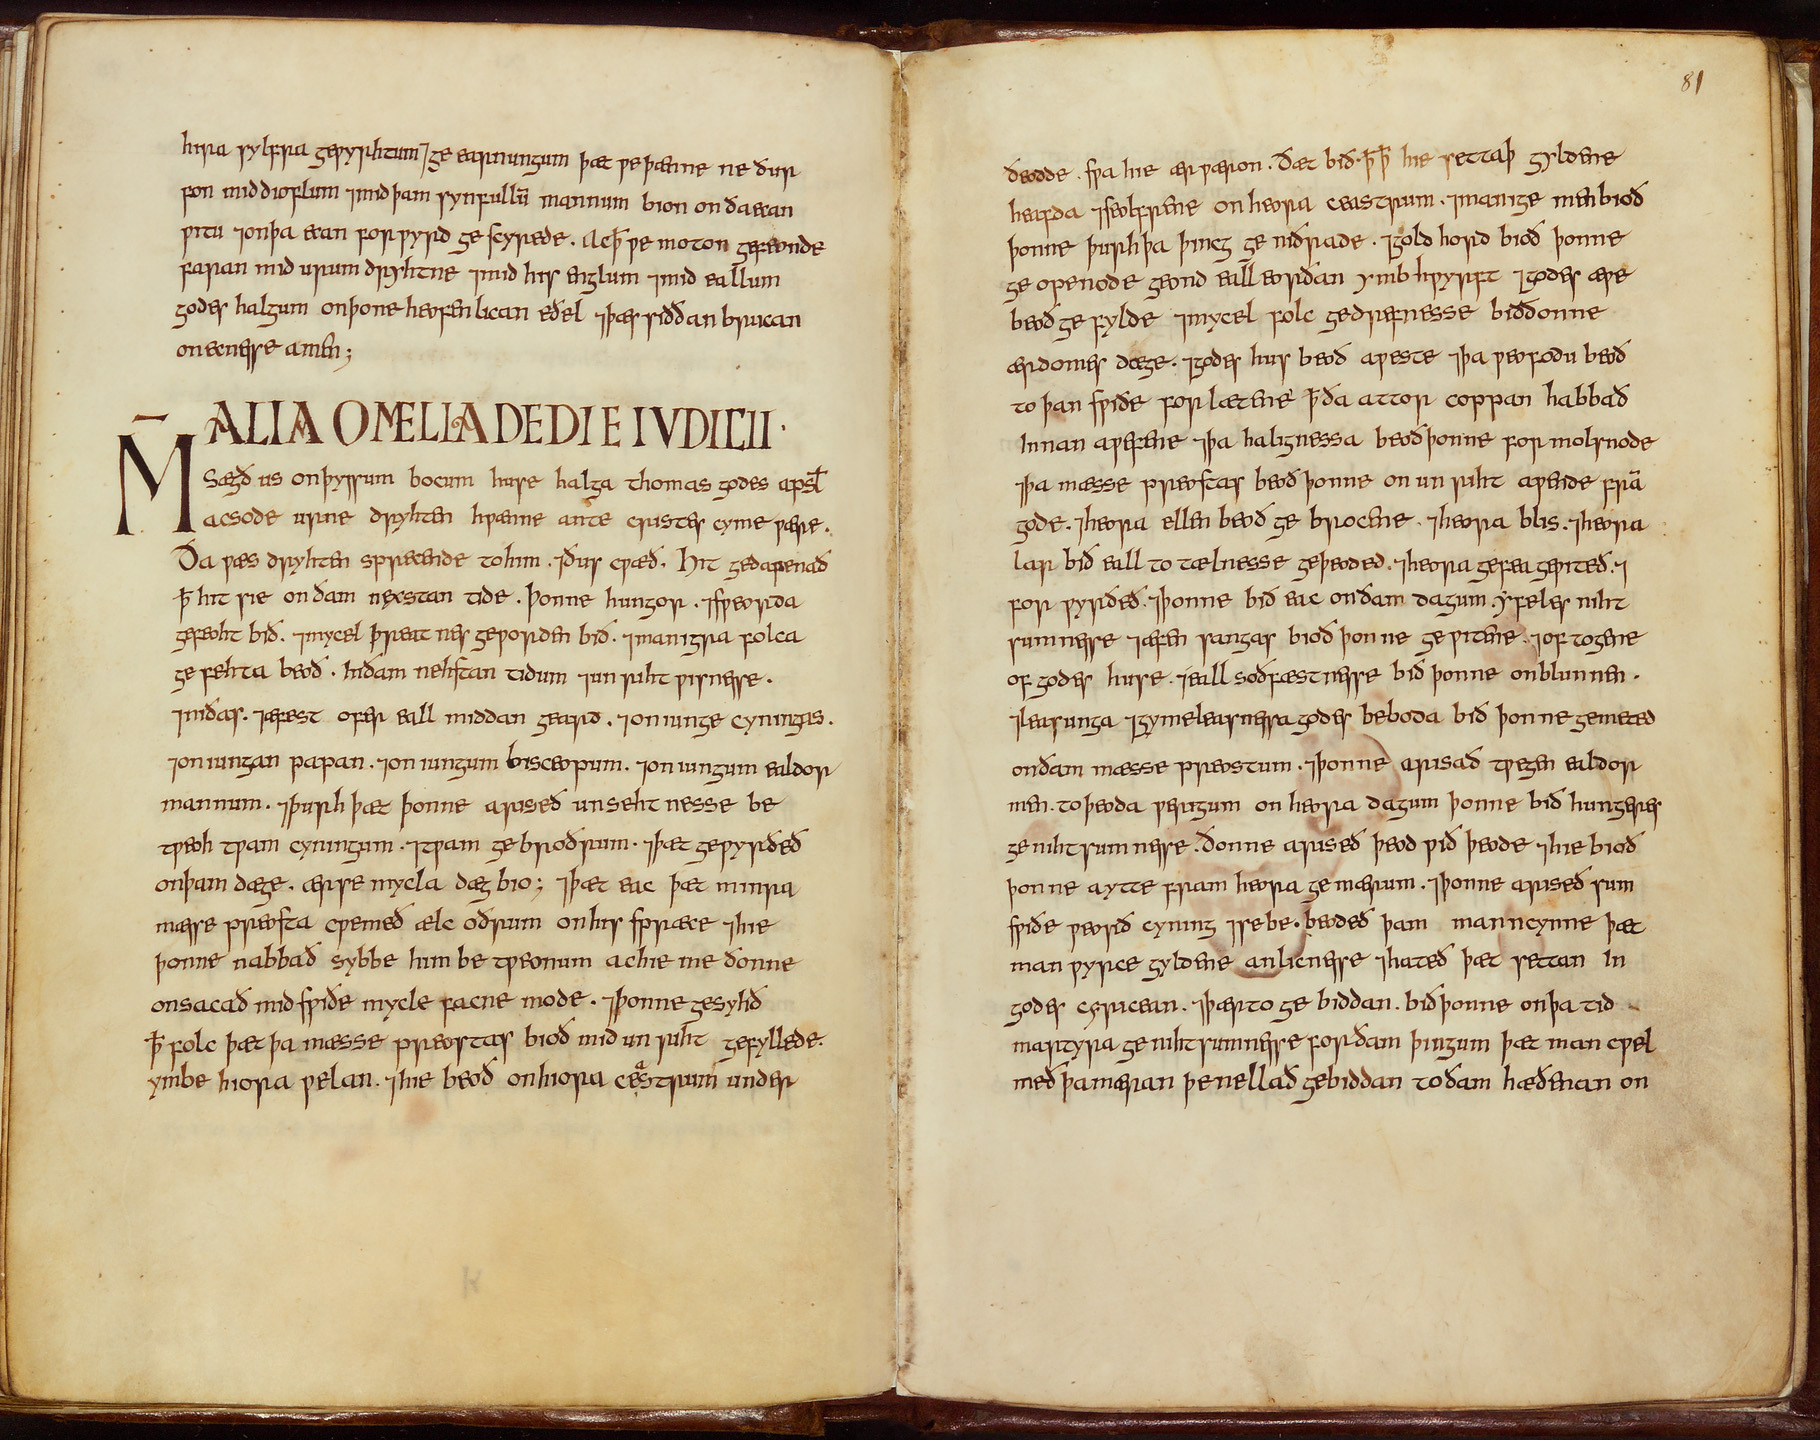 hira sylfra gewyrhtum ⁊ ge earnungum þæt we þænne ne ður
fon mid dioflum ⁊ mid þam synfullū mannum bion on ða ecan
witu ⁊ on þa ecan forwyrd ge scyrede. Ac ꝥ we moton gefeonde
faran mid urum dryhtne ⁊ mid his englum ⁊ mid eallum
godes halgum on þone heofenlican eðel ⁊ þær siððan brucan
on ecnesse amen;
ALIA OMELIA DE DIE IVDICII·
M̄ Sægð us on þyssum bocum hu se halga thomas godes apsƚ
acsode urne dryhten hwænne ante cristes cyme wære.
Ða wæs dryhten sprecende to him. ⁊ ðus cwæð. Hit gedafenað
ꝥ hit sie on ðam nexstan tide. þonne hungor. ⁊ sweorda
gefeoht bið. ⁊ mycel þreat nes geworden bið. ⁊ manigra folca
ge fehta beoð. hi ðam nehstan tidum ⁊ un riht wisnesse.
⁊ niðas. ⁊ æfest ofer eall middan geard. ⁊ on iunge cyningas.
⁊ on iungan papan. ⁊ on iungum bisceopum. ⁊ on iungum ealdor
mannum. ⁊ þurh þæt þonne ariseð unseht nesse be
tweoh twam cyningum. ⁊ twam ge broðrum. ⁊ þæt gewyrðeð
on þam dæge. ærse mycla dæg bio; ⁊ þæt eac þæt minra
mæsse preosta cwemeð ælc oðrum on his spræce ⁊ hie
þonne nabbað sybbe him be tweonum ac hie me ðonne
onsacað mid swiðe mycle facne mode. ⁊ þonne gesyhð
ꝥ folc þæt þa mæsse preostas bioð mid un riht gefyllede.
ymbe hiora welan. ⁊ hie beoð on hiora ceastrum under
81
ðeodde. swa hie ær wæron. Ðæt bið. ꝥ ꝥ hie settaþ gyldene
heafda ⁊ seolfrene on heora ceastrum. ⁊ manige men bioð
þonne þurh þa þincg ge niðrade. ⁊ gold hord bioð þonne
ge openode geond eall eorðan ymb hwyrft ⁊ godes æwe
beoð ge fylde ⁊ mycel folc gedrefnesse bið ðonne
ær domes dæge. ⁊ godes hus beoð aweste ⁊ þa weofodu beoð
to þan swiðe forlætene ꝥ ða attor coppan habbað
Innan awefene ⁊ þa halignessa beoð þonne for molsnode
⁊ þa mæsse preostas beoð þonne on un riht awende frā
gode. ⁊ heora ellen beoð ge brocene. ⁊ heora blis. ⁊ heora
lar bið eall to tælnesse geþeoded. ⁊ heora gefea gewiteð. ⁊
for wyrðeð. ⁊ þonne bið eac on ðam dagum. yfeles niht
sumnesse ⁊ æfen sangas bioð þonne ge witene. ⁊ of togene
of godes huse. ⁊ eall soðfæstnesse bið þonne onblunnen.
⁊ leasunga ⁊ gymeleasnessa godes beboda bið þonne gemeted
on ðam mæsse preostum. ⁊ þonne arisað twegen ealdor
men. to þeoda werigum on heora dagum þonne bið hungeres
genihtsumnesse. ðonne ariseð þeod wið þeode ⁊ hie bioð
þonne aytte fram heora gemærum. ⁊ þonne ariseð sum
swiðe weorð cyning ⁊ se be. beodeð þam manncynne þæt
man wyrce gyldene anlicnesse ⁊ hateð þæt settan In
godes cyricean. ⁊ þærto ge biddan. bið þonne on þa tid
martyra genihtsumnesse forðam þingum þæt man cwel
með þa mæran þe nellað gebiddan to ðam hæðenan on